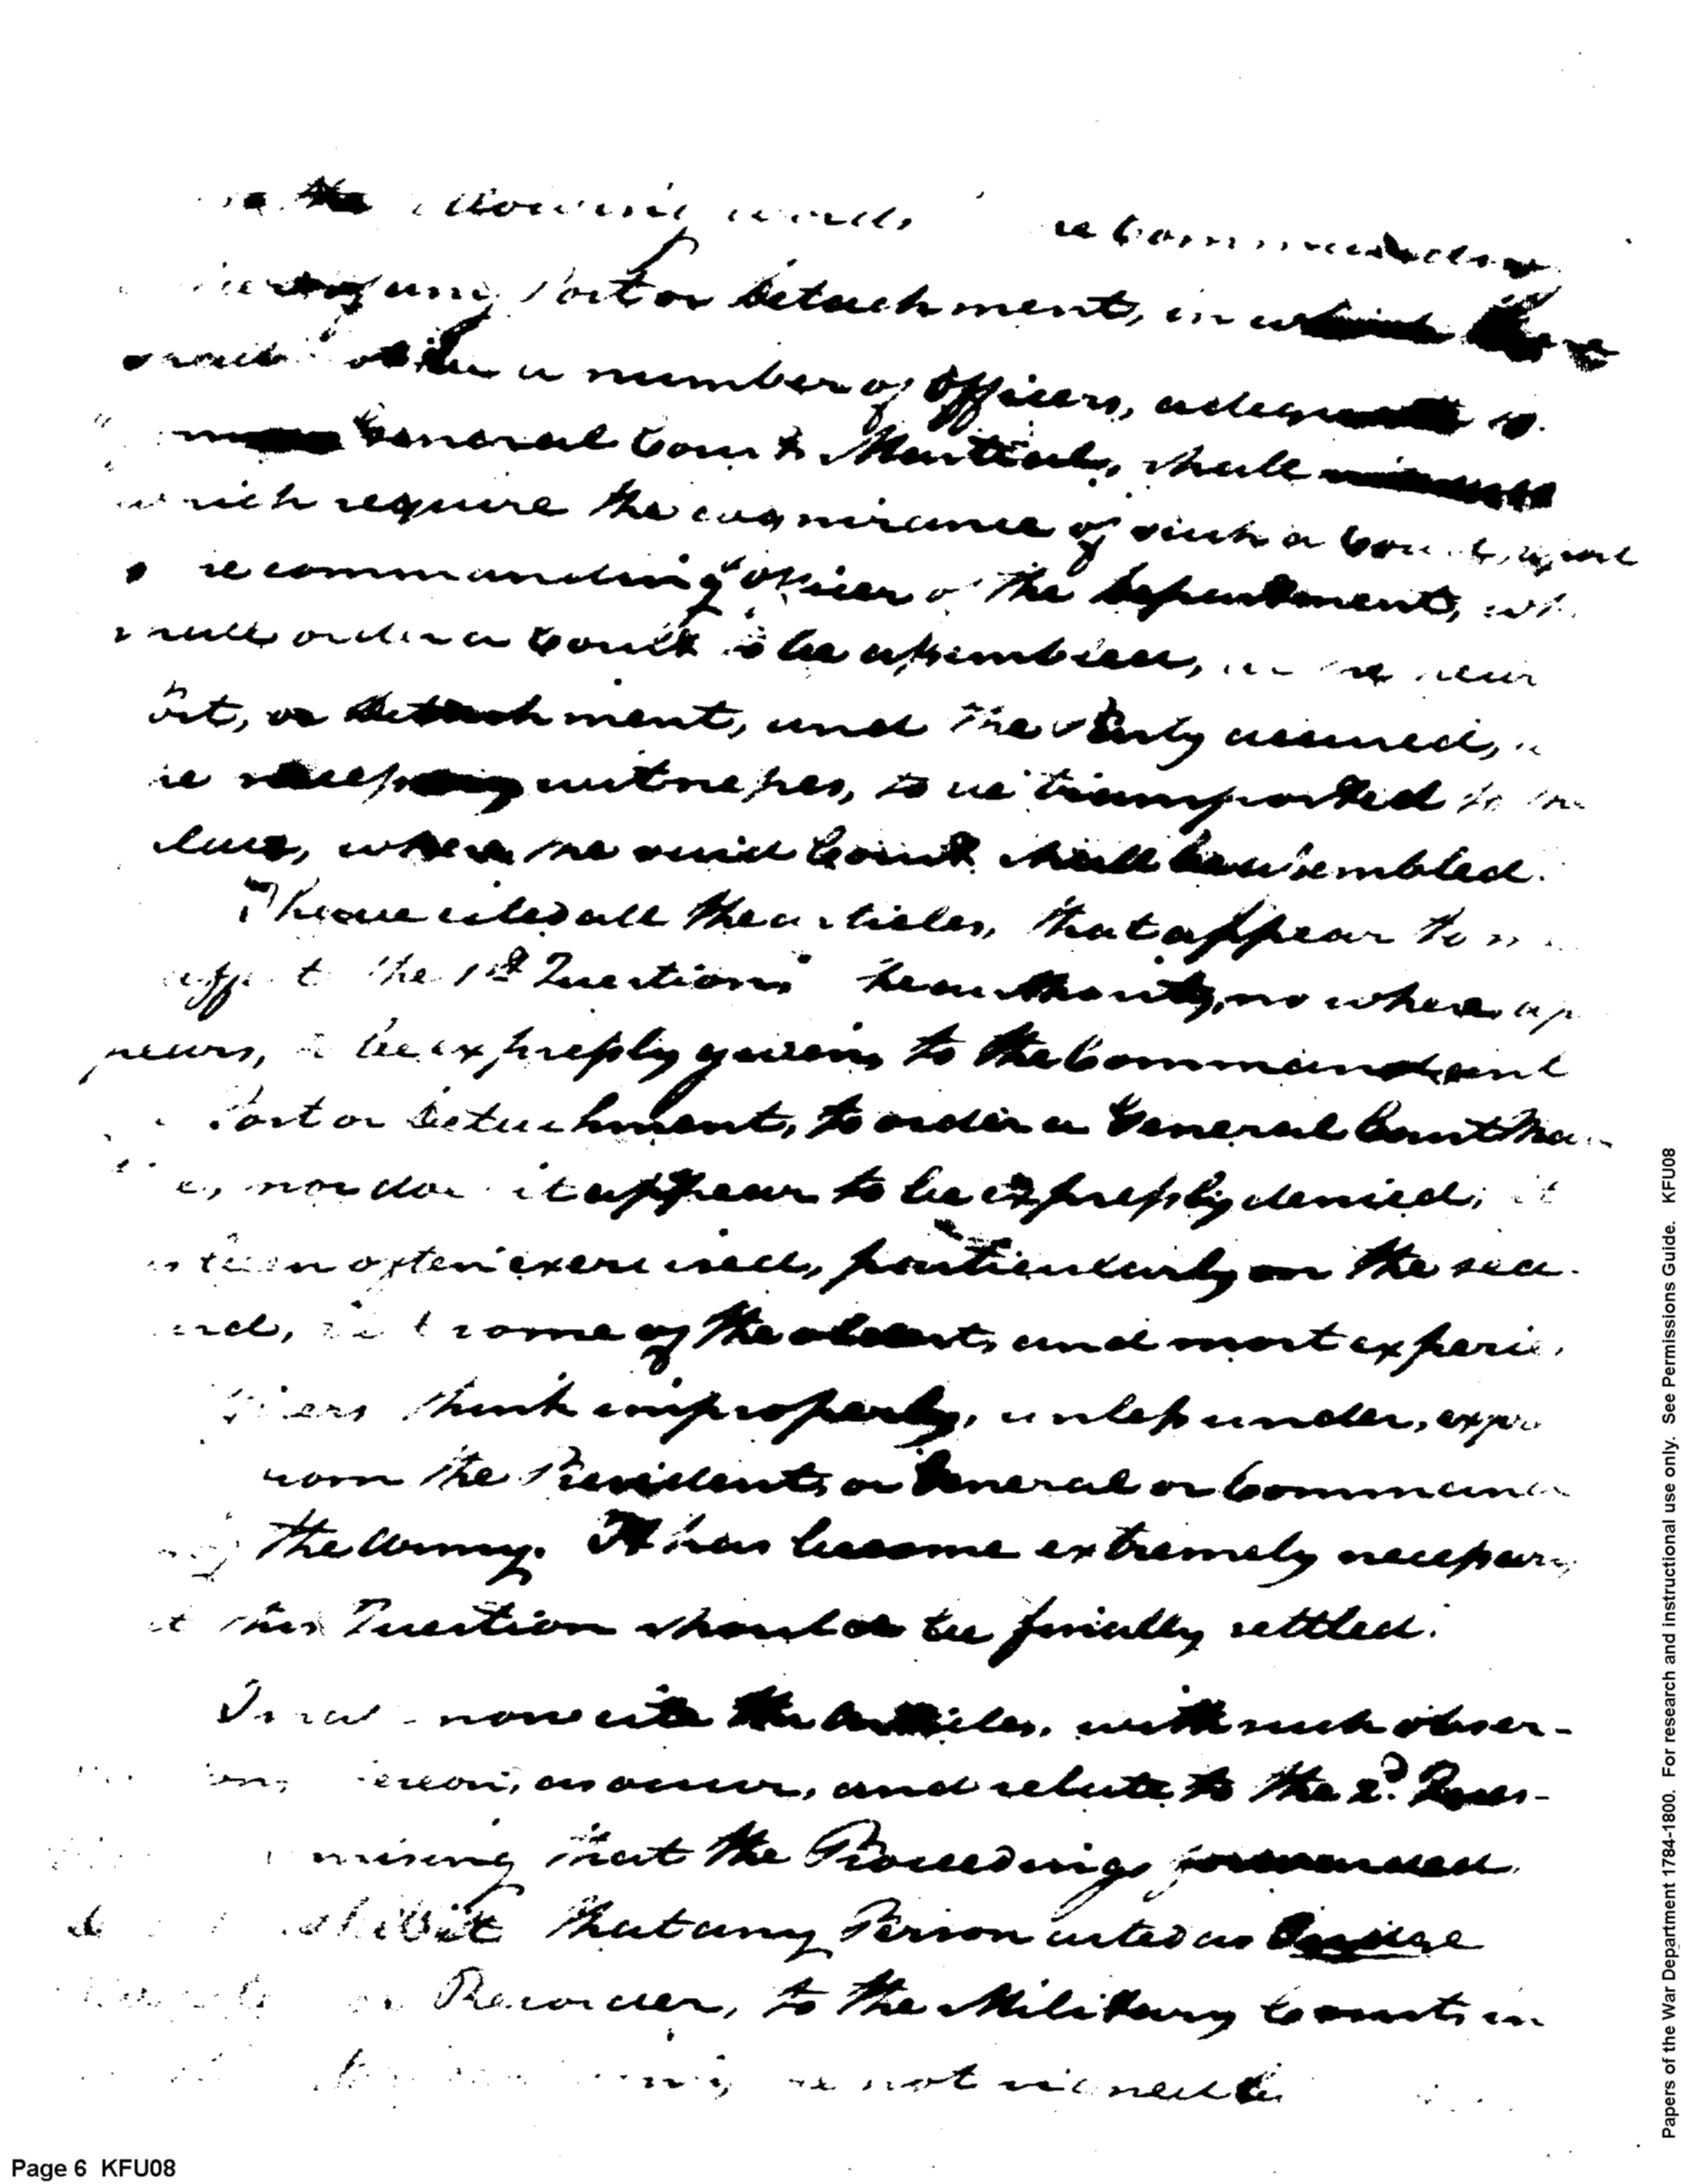 in the following words the Commanding
officer of any Post or Detachment, in which there
shall not be a number of officers, adequate to
form a General Court Martial, shall
which require the cognizance of such a Court, report
to the commanding officer of the Department, who
shall order a Court to be assembled, at the near
Post, or Detachment, and the Party accused,
the necessary witnesses, to be transported to the
place, where the said Court shall be assembled.
I have cited all the articles, that appear to me
the 1st Question the authority, no where ap
pears, to be expressly given, to the Commandant
Post or Detachment, to order a General Court Mar
nor does it appear to be expressly denied; it
has been often exercised, particularly on the sea
some of the oldest, and most experi
officers think improperly, unless under, expre
from the President, or General or Command
the army. It has become extremely necessary
this Question should be finally settled.
I now cite the Articles, with such obser-
thereon, as occur, and relate to the 2d. Ques-
that the Proceedings forwarded
exhibit that any Person acted as Judge
or Recorder, to the Military Courts in
not signed
Papers of the War Department 1784-1800. For research and instructional use only. See Permissions Guide. KFU08
Page 6 KFU08